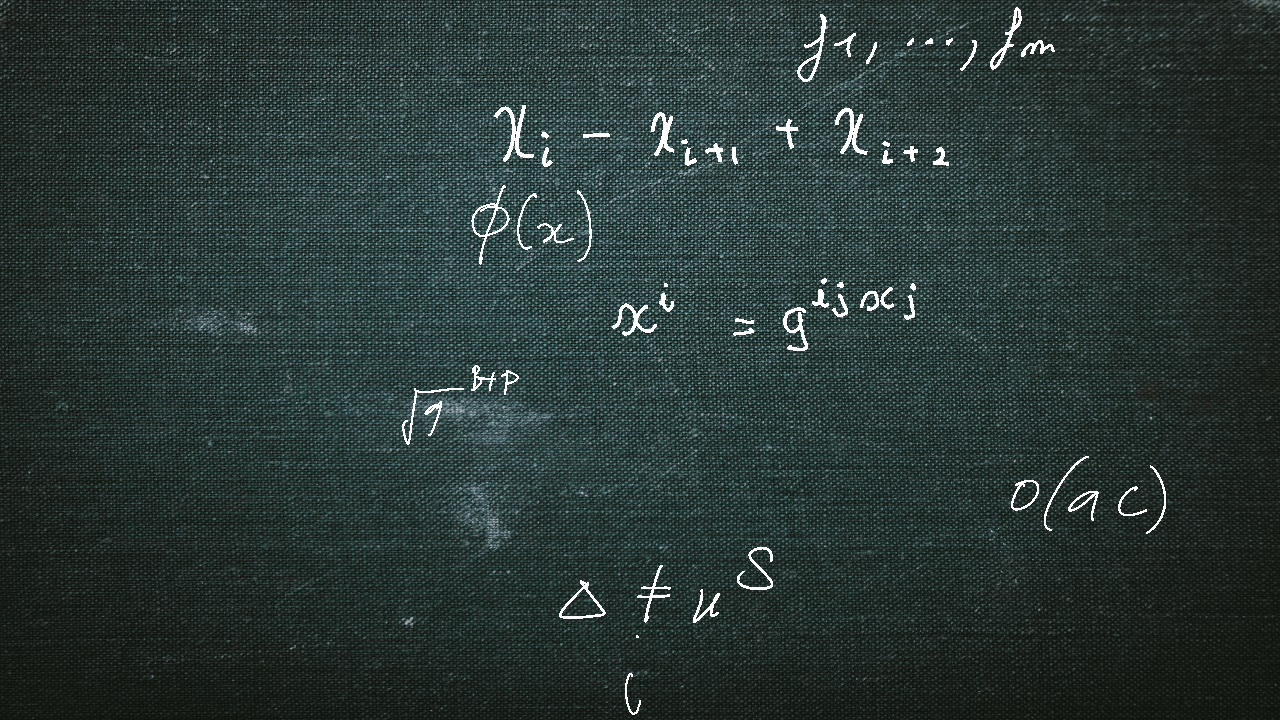 f1, ..., fm
x_i - x_{i+1} + x_{i+2}
ϕ(x)
x^i = g^{ij} x_j
√9^{B+P}
o(ac)
Δ ≠ u^S
(